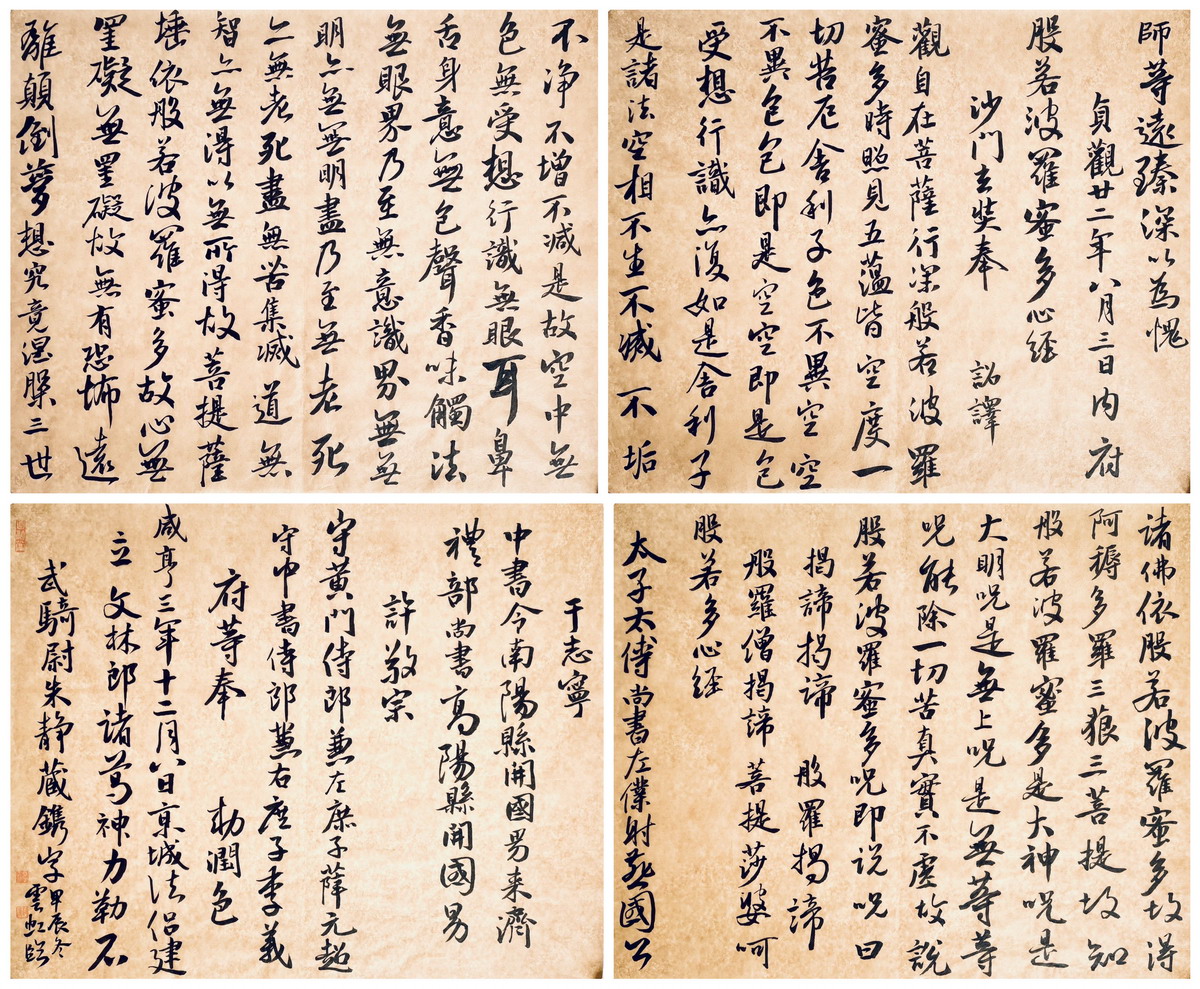 師等遠臻深以為愧
貞觀廿二年八月三日內府
般若波羅蜜多心經
沙門玄奘奉 詔譯
觀自在菩薩行深般若波羅
蜜多時照見五蘊皆空度一
切苦厄舍利子色不異空空
不異色色即是空空即是色
受想行識亦復如是舍利子
是諸法空相不生不滅不垢
不淨不增不減是故空中無
色無受想行識無眼耳鼻
舌身意無色聲香味觸法
無眼界乃至無意識界無無
明亦無無明盡乃至無老死
亦無老死盡無苦集滅道無
智亦無得以無所得故菩提薩
埵依般若波羅蜜多故心無
罣礙無罣礙故無有恐怖遠
離顛倒夢想究竟涅槃三世
諸佛依般若波羅蜜多故得
阿耨多羅三藐三菩提故知
般若波羅蜜多是大神咒是
大明咒是無上咒是無等等
咒能除一切苦真實不虛故說
般若波羅蜜多咒即说咒曰
揭諦揭諦 般羅揭諦
般羅僧揭諦 菩提莎婆呵
般若多心經
太子太傅尚書左僕射燕國公
于志寧
中書令南陽縣開國男来濟
禮部尚書高陽縣開國男
許敬宗
守黃門侍郎兼左庶子薛元超
守中書侍郎兼右庶子李義
府等奉 勅潤色
咸亨三年十二月八日京城法侶建
立 文林郎諸葛神力勒石
武騎尉朱静藏鐫字
甲辰冬
雲虹臨